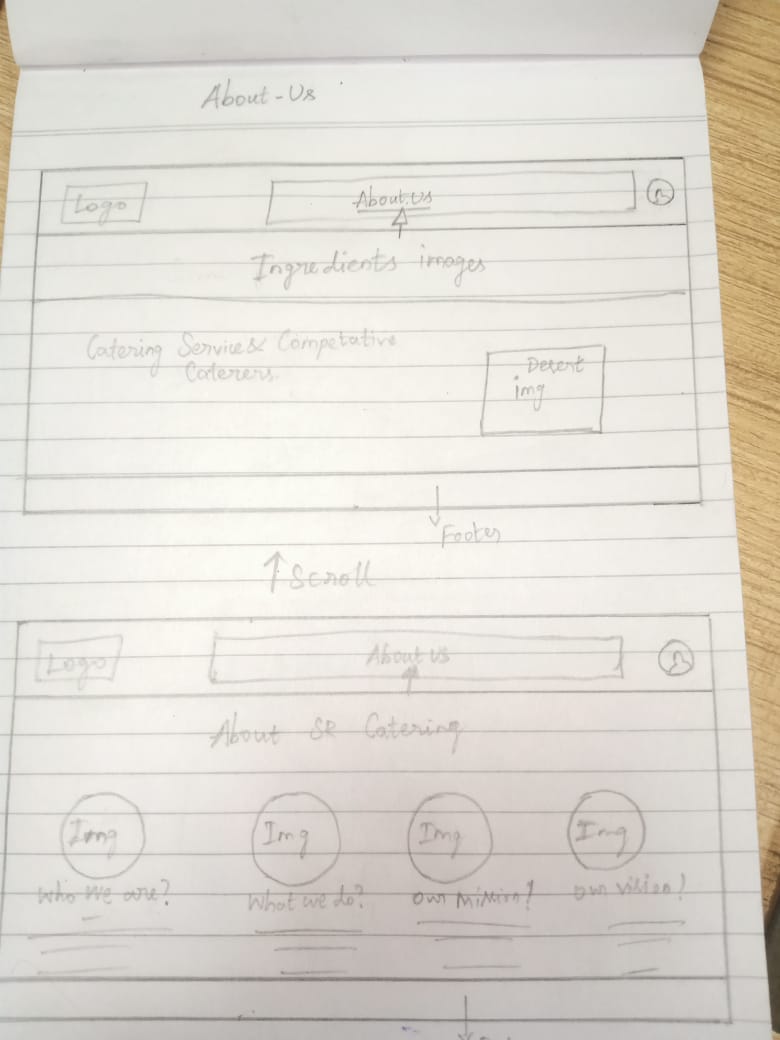 About-Us
Logo
About Us
Ingredients images
Catering Service & Competative
Caterers.
Desert
img
Footer
Scroll
Logo
About us
About SR Catering
Img
Img
Img
Img
who we are?
What we do?
our mission!
our vision!